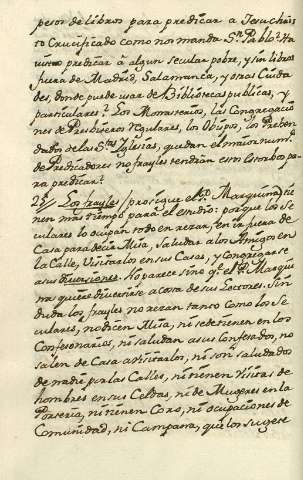 pesor de libros para predicar a Jesuchris
to Crucificado como nos manda Sn. Pablo? Ha
predicar à algun secular pobre, y sin libros
fuera de Madrid, Salamanca, y otras Ciuda
des, donde puede usar de Bibliotecas publicas, y
particulares? Los Monasterios, las Congregacio
nes de Presbiteros regulares, los Obispos, los Preben
dados de las Stas. Yglesias, quedan el maior num.o
de Predicadores no frayles tendrán este estorbo pa
ra predicar?
Los frayles / prosigue el P. Marquina / tie
nen más tiempo para el estudio: porque los Se
culares lo ocupan todo en rezar, en ir fuera de
Casa para decir Misa, saludar a los Amigos en
la Calle, Visitarlos en sus Casas, y Congregarse
a sus diversiones. No parece sino q.e el P. Marqui
na quiere divertirse a costa de sus Lectores. Sin
duda los frayles no rezan tanto como los Se
culares, no dicen Misa, ni se detienen en los
Confesonarios, ni saludan a sus confesados, no
salen de Casa a visitarlos, ni son saludados
de nadie por las Calles, ni tienen Visitas de
hombres en sus Celdas, ni de Mugeres en la
Porteria, ni tienen Coro, ni ocupaciones de
Comunidad, ni Campana, que los sugete